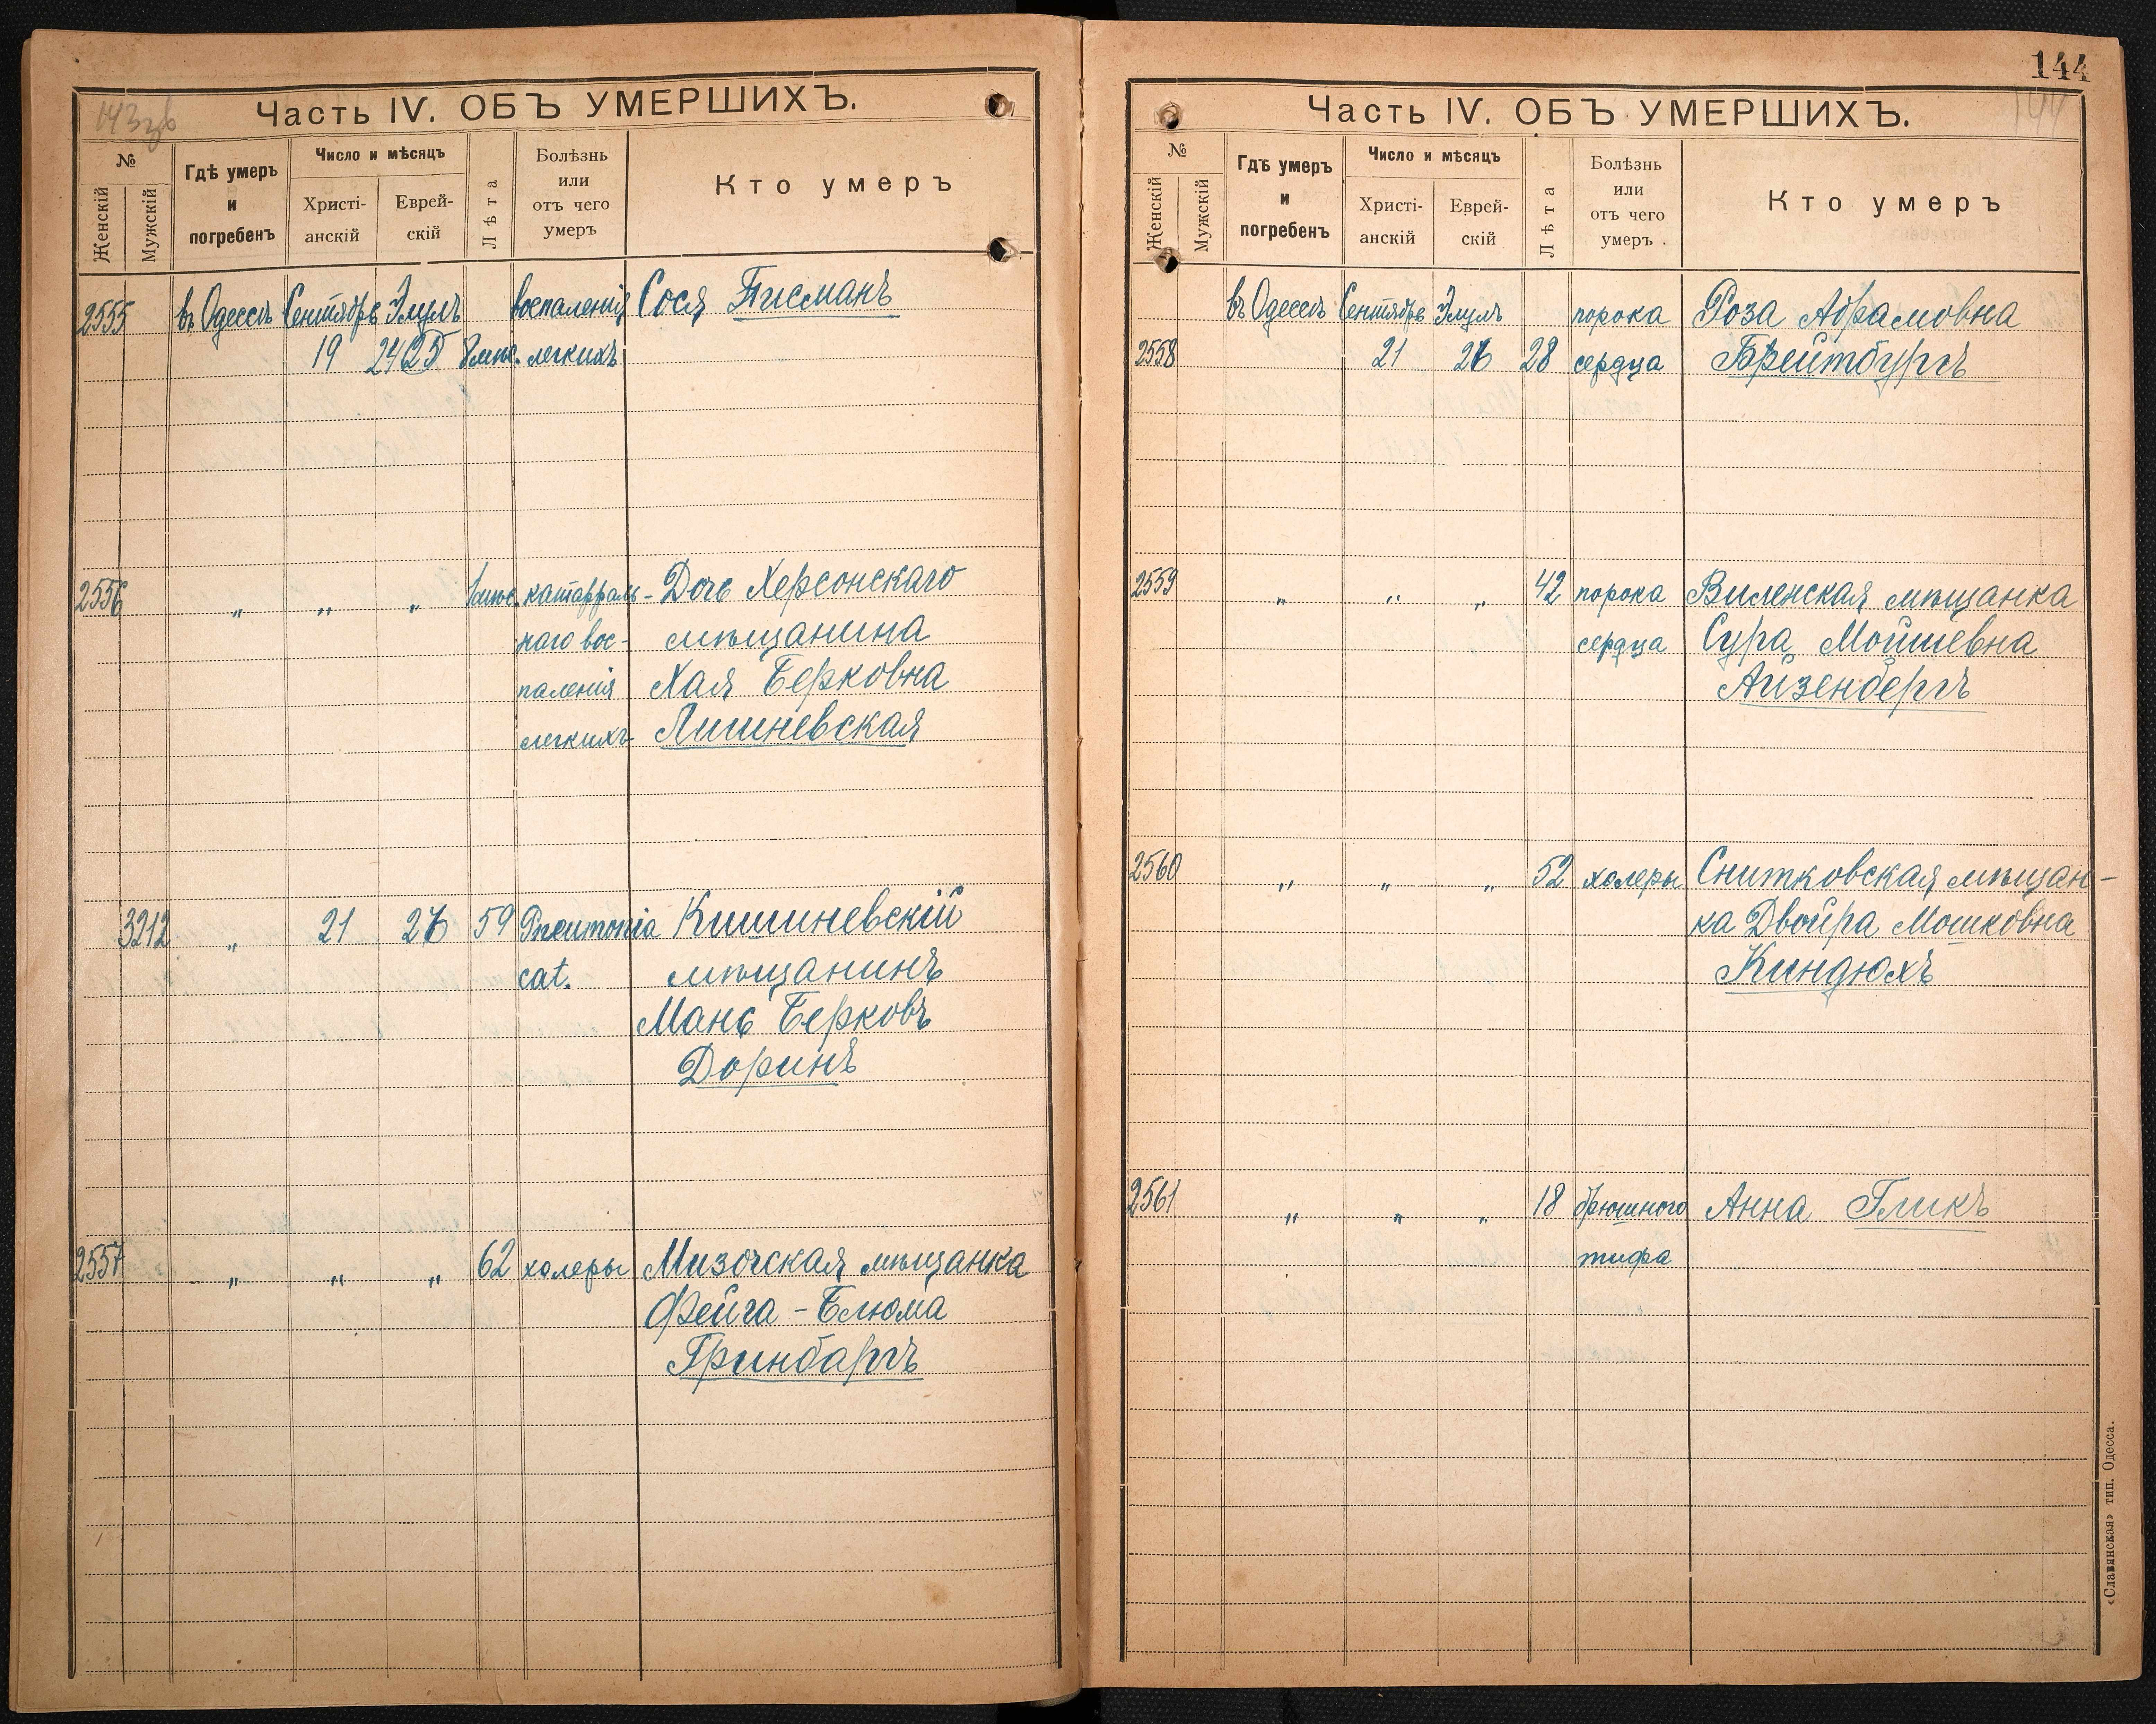 143зв
Часть IV. ОБЪ УМЕРШИХЪ.
№
Женскій
Мужскій
Гдѣ умеръ
и
погребенъ
Число и мѣсяцъ
Христі-
анскій
Еврей-
скій
Лѣта
Болѣзнь
или
отъ чего
умеръ
Кто умеръ
2555 въ Одессѣ Сентябрь Элулъ воспаленія Сося Писманъ
19 24/25 8 мѣс. легкихъ
2556 „ „ „ 1 мѣс. катарраль- Дочь Херсонскаго
наго вос- мѣщанина
паленія Хая Берковна
легкихъ Лишневская
3212 „ 21 26 59 Pneumonia Кишиневскій
cat. мѣщанинъ
Мань Берковъ
Доринъ
2557 „ „ „ 62 холеры Мизочская мѣщанка
Фейга-Блюма
Гринбаргъ
144
144
Часть IV. ОБЪ УМЕРШИХЪ.
№
Женскій
Мужскій
Гдѣ умеръ
и
погребенъ
Число и мѣсяцъ
Христі-
анскій
Еврей-
скій
Лѣта
Болѣзнь
или
отъ чего
умеръ
Кто умеръ
въ Одессѣ Сентябрь Элулъ порока Роза Абрамовна
2558 21 26 28 сердца Брейтбургъ
2559 „ „ „ 42 порока Виленская мѣщанка
сердца Сура Мойшевна
Айзенбергъ
2560 „ „ „ 52 холеры Снитковская мѣщан-
ка Двойра Мошковна
Киндюхъ
2561 „ „ „ 18 брюшного Анна Гликъ
тифа
«Славянская» тип. Одесса.